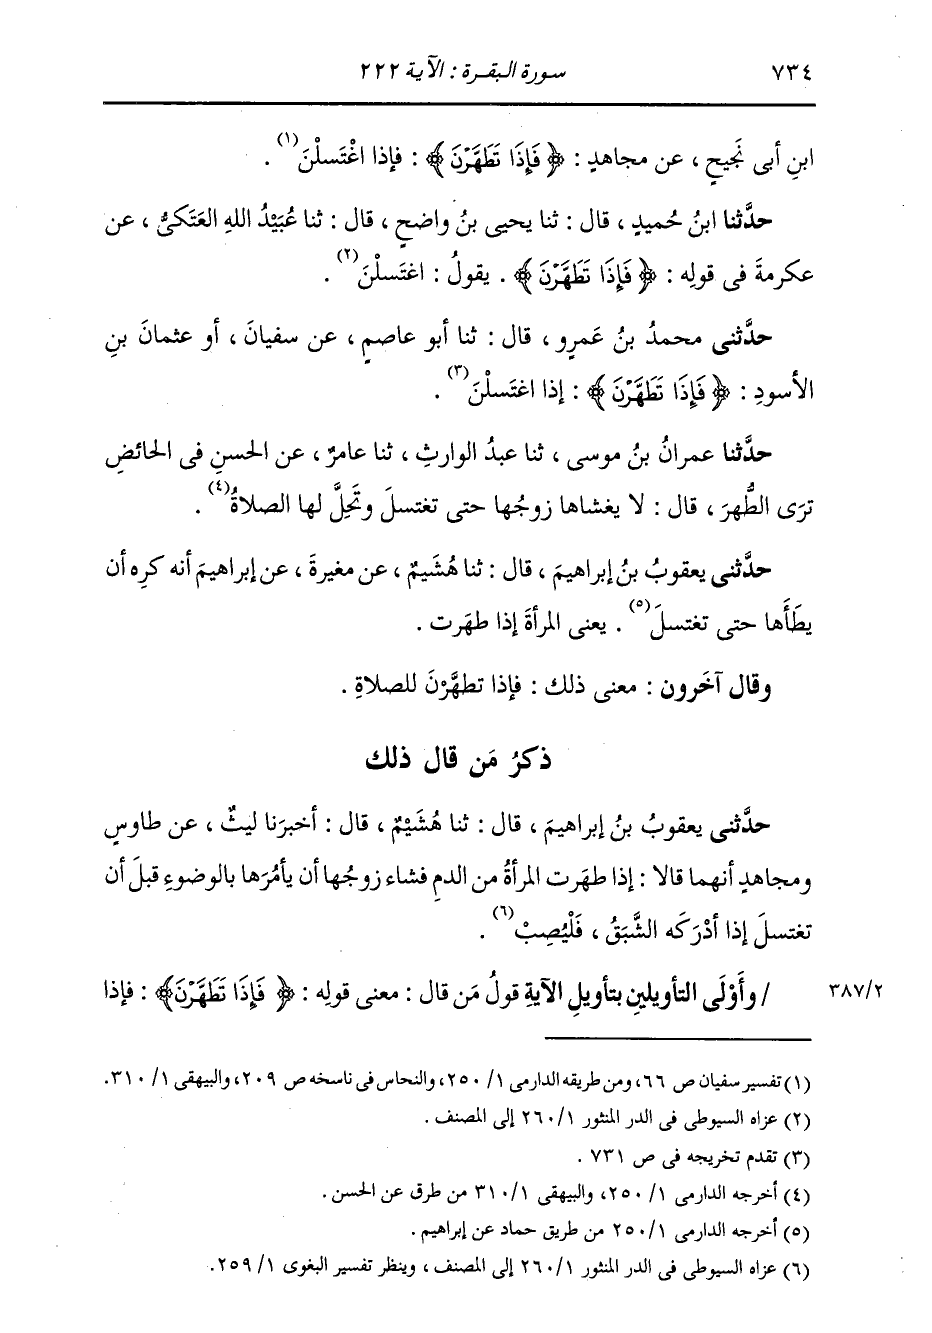 ٧٣٤ سورة البقرة : الآية ٢٢٢
ابنِ أبى نَجيحٍ ، عن مجاهدٍ : ﴿ فَإِذَا تَطَهَّرْنَ ﴾ : فإذا اغْتَسلْنَ(١) .
حدَّثنا ابنُ حُميدٍ ، قال : ثنا يحيى بنُ واضحٍ ، قال : ثنا عُبَيْدُ اللهِ العَتَكىُّ ، عن
عكرمةَ فى قولِه : ﴿ فَإِذَا تَطَهَّرْنَ ﴾ . يقولُ : اغتَسلْنَ(٢) .
حدَّثنى محمدُ بنُ عَمرٍو ، قال : ثنا أبو عاصمٍ ، عن سفيانَ ، أو عثمانَ بنِ
الأسودِ : ﴿ فَإِذَا تَطَهَّرْنَ ﴾ : إذا اغتَسلْنَ(٣) .
حدَّثنا عمرانُ بنُ موسى ، ثنا عبدُ الوارثِ ، ثنا عامرٌ ، عن الحسنِ فى الحائضِ
ترَى الطُّهرَ ، قال : لا يغشاها زوجُها حتى تغتسلَ وتَحِلَّ لها الصلاةُ(٤) .
حدَّثنى يعقوبُ بنُ إبراهيمَ ، قال : ثنا هُشَيمٌ ، عن مغيرةَ ، عن إبراهيمَ أنه كرِه أن
يطَأَها حتى تغتسلَ(٥) . يعنى المرأةَ إذا طهَرت .
وقال آخَرون : معنى ذلك : فإذا تطهَّرْنَ للصلاةِ .
ذكرُ مَن قال ذلك
حدَّثنى يعقوبُ بنُ إبراهيمَ ، قال : ثنا هُشَيْمٌ ، قال : أخبرَنا ليثٌ ، عن طاوسٍ
ومجاهدٍ أنهما قالا : إذا طهَرت المرأةُ من الدمِ فشاء زوجُها أن يأمُرَها بالوضوءِ قبلَ أن
تغتسلَ إذا أدْرَكه الشَّبَقُ ، فَلْيُصِبْ(٦) .
٣٨٧/٢ / وأَوْلَى التأويلينِ بتأويلِ الآيةِ قولُ مَن قال : معنى قولِه : ﴿ فَإِذَا تَطَهَّرْنَ ﴾ : فإذا
(١) تفسير سفيان ص ٦٦، ومن طريقه الدارمى ١/ ٢٥٠، والنحاس فى ناسخه ص ٢٠٩، والبيهقى ١/ ٣١٠.
(٢) عزاه السيوطى فى الدر المنثور ٢٦٠/١ إلى المصنف .
(٣) تقدم تخريجه فى ص ٧٣١ .
(٤) أخرجه الدارمى ١/ ٢٥٠، والبيهقى ٣١٠/١ من طرق عن الحسن .
(٥) أخرجه الدارمى ٢٥٠/١ من طريق حماد عن إبراهيم .
(٦) عزاه السيوطى فى الدر المنثور ٢٦٠/١ إلى المصنف ، وينظر تفسير البغوى ١/ ٢٥٩.